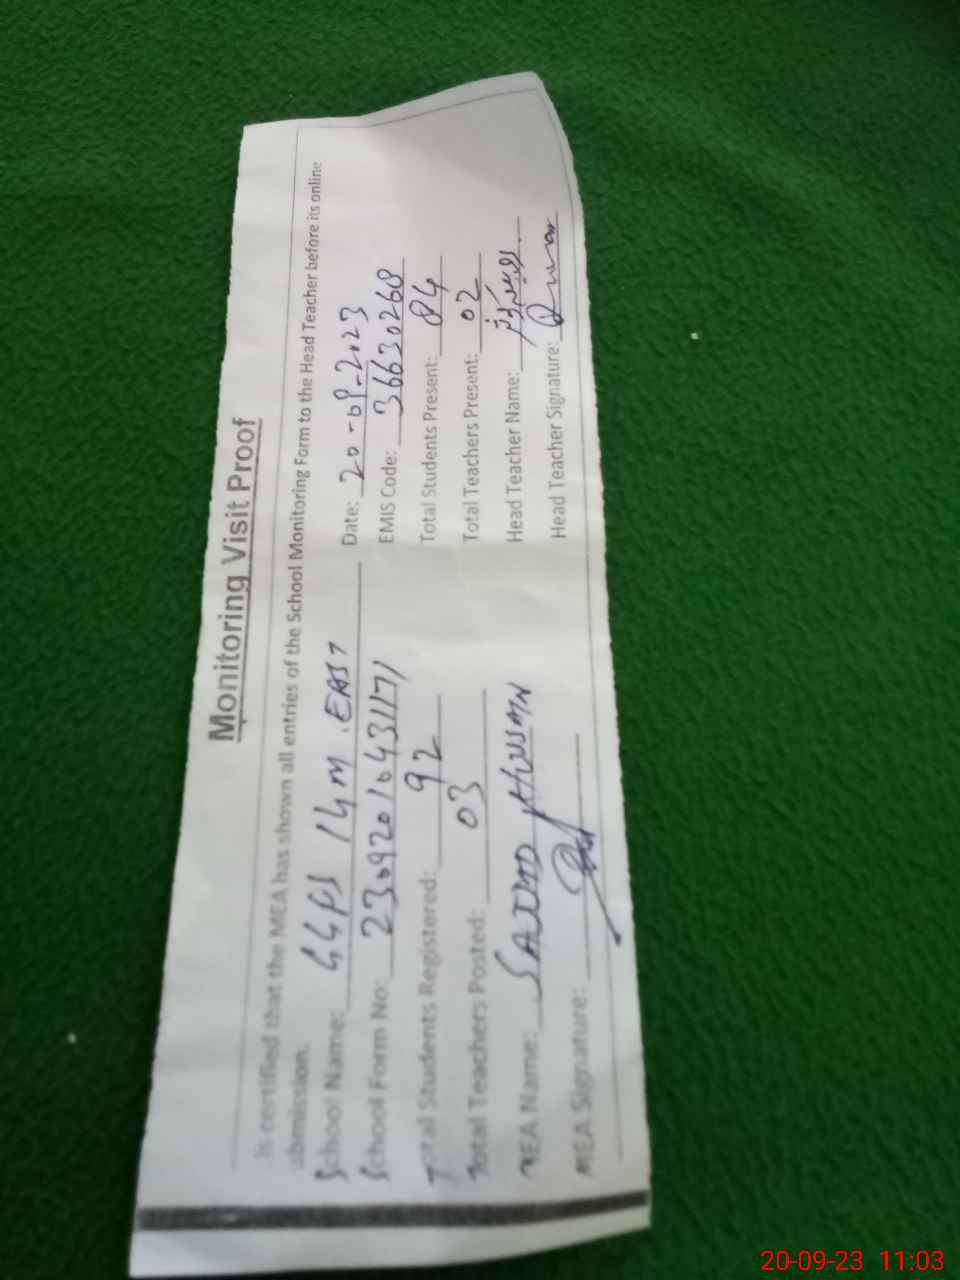 Monitoring Visit Proof
Is certified that the MEA has shown all entries of the School Monitoring Form to the Head Teacher before its online
submission.
School Name: GGPS 14M. EAST Date: 20-09-2023
School Form No: 230920104311171 EMIS Code: 36630268
Total Students Registered: 92 Total Students Present: 84
Total Teachers Posted: 03 Total Teachers Present: 02
MEA Name: SAJJAD HUSSAIN Head Teacher Name:
MEA Signature: Head Teacher Signature:
20-09-23 11:03